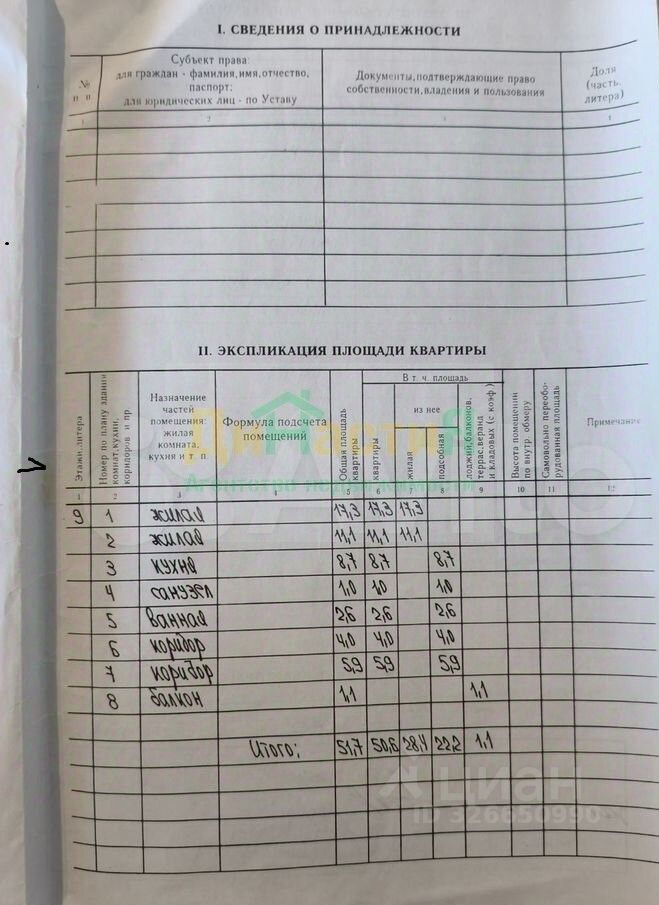 I. СВЕДЕНИЯ О ПРИНАДЛЕЖНОСТИ
№ п п
Субъект права:
для граждан - фамилия, имя, отчество,
паспорт;
для юридических лиц - по Уставу
Документы, подтверждающие право
собственности, владения и пользования
Доля
(часть,
литера)
1 2 3 4
II. ЭКСПЛИКАЦИЯ ПЛОЩАДИ КВАРТИРЫ
Этажи, литера
Номер по плану здания
комнат, кухни,
коридоров и пр
Назначение
частей
помещения:
жилая
комната,
кухня и т п
Формула подсчета
помещений
Общая площадь
квартиры
В т. ч. площадь
квартиры
из нее
жилая
подсобная
лоджий, балконов,
террас, веранд
и кладовых (с коэф.)
Высота помещений
по внутр. обмеру
Самовольно переобо-
рудованная площадь
Примечание
1 2 3 4 5 6 7 8 9 10 11 12
9 1 жилая 17,3 17,3 17,3
2 жилая 11,1 11,1 11,1
3 кухня 8,7 8,7 8,7
4 санузел 1,0 1,0 1,0
5 ванная 2,6 2,6 2,6
6 коридор 4,0 4,0 4,0
7 коридор 5,9 5,9 5,9
8 балкон 1,1 1,1
Итого: 51,7 50,6 28,4 22,2 1,1
циан
ID 326650990